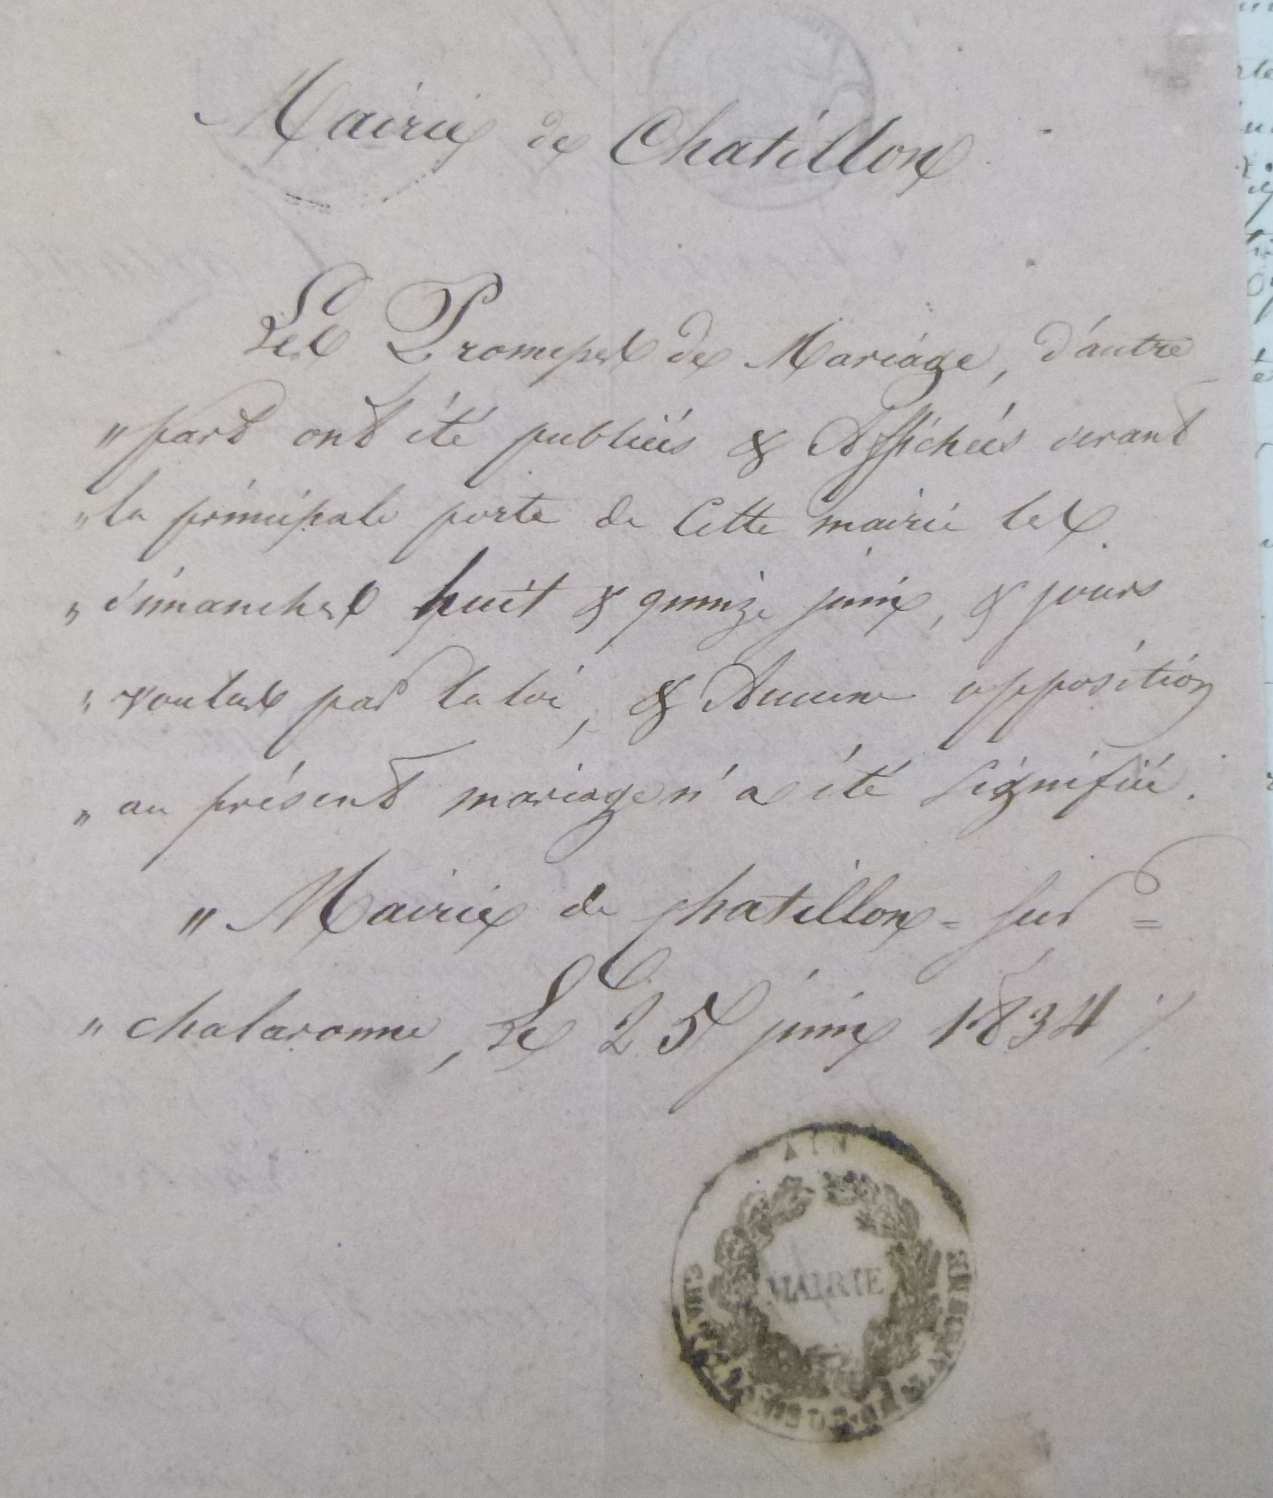 Mairie de Chatillon
Les Promesses de Mariage, d'autre
" part ont été publiées & Affichées devant
" la principale porte de Cette mairie les
" dimanches huit & quinze juin, & jours
" voulus par la loi, & Aucune opposition
" au présent mariage n'a été signifiée.
" Mairie de chatillon = sur =
" chalaronne, Le 25 juin 1834 ./.
AIN
MAIRIE